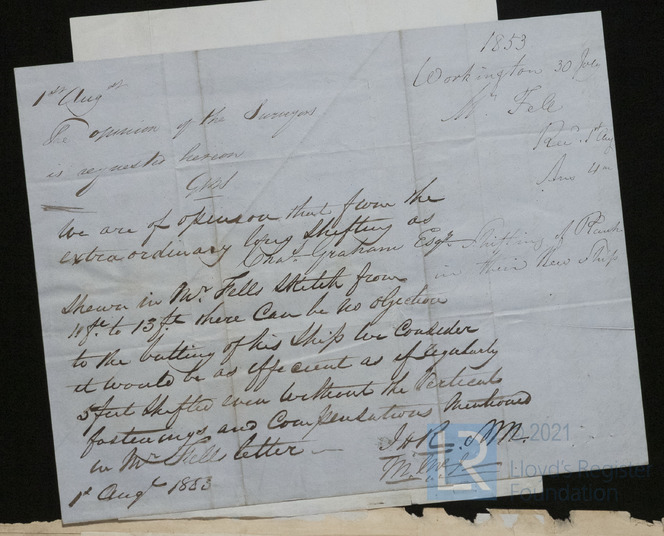 1853
Workington 30 July
Mr. Fell
Recd. 1st Aug
Ans 4
Shifting of Plank
in their New Ship
1st Augst
The opinion of the Surveyors
is requested hereon
Chas. Graham Esqr
We are of openion that from the
extraordinary long Shifting as
Shewn in Mr. Fells Sketch from
11ft. to 13ft there Can be no objection
to the butting of his Ship We Consider
it would be as effecient as if regularly
5 feet Shifted even Without the Verticals
fastenings and Compensations Mentioned
in Mr Fells letter
1st Augt 1853
LR
2021
Lloyd's Register
Foundation